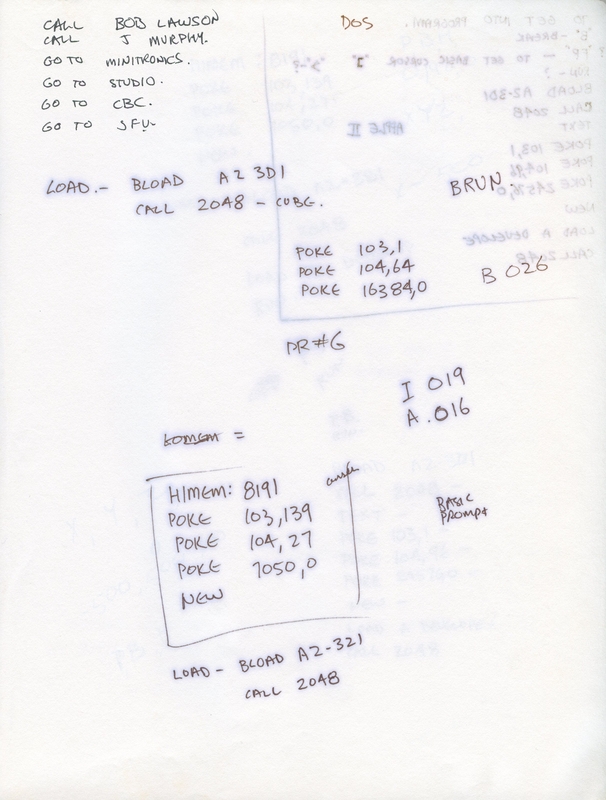 CALL BOB LAWSON
CALL J MURPHY.
GO TO MINITRONICS.
GO TO STUDIO.
GO TO CBC.
GO TO SFU.
DOS
LOAD.- BLOAD A2 3D1
CALL 2048 - CUBE.
BRUN.
POKE 103,1
POKE 104,64
POKE 16384,0
B 026
PR#6
I 019
A.016
LOMEM =
HIMEM: 8191
POKE 103,139
POKE 104,27
POKE 7050,0
NEW
BASIC
PROMPT
LOAD - BLOAD A2-321
CALL 2048